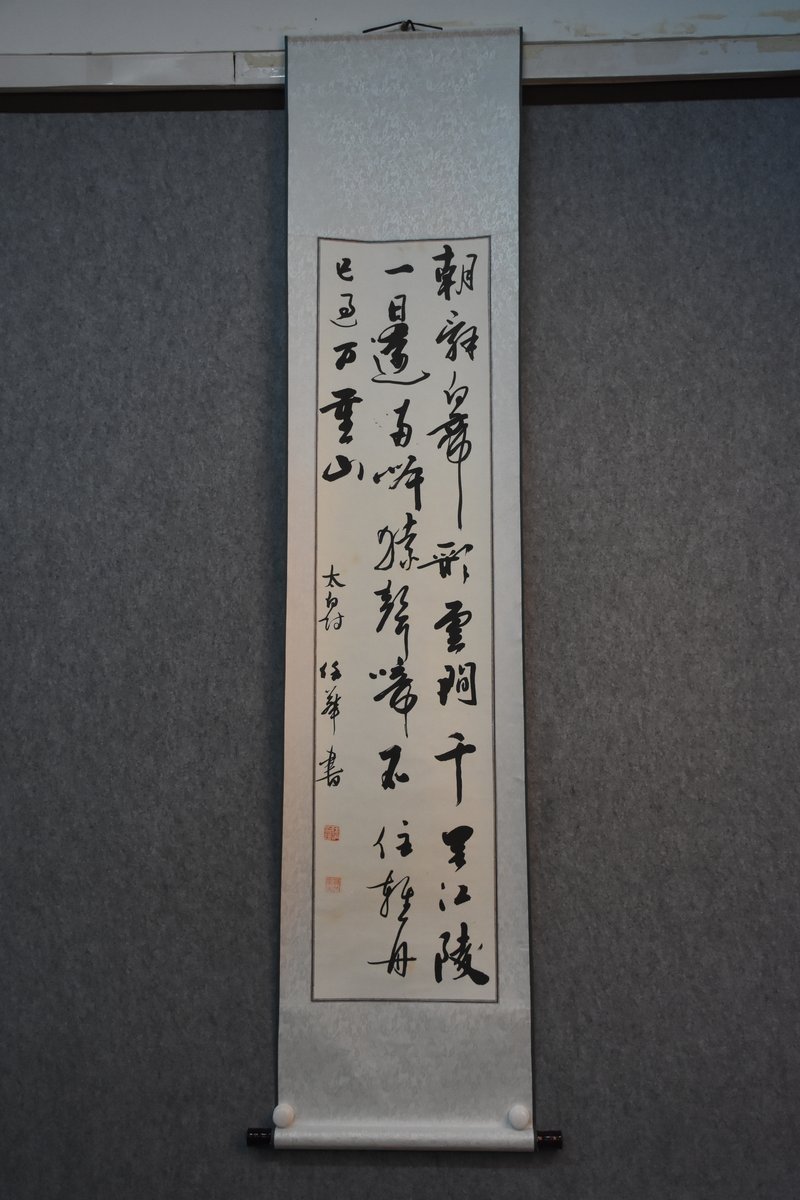 朝辭白帝彩雲間千里江陵
一日還兩岸猿聲啼不住輕舟
已過万重山 太白詩 華書